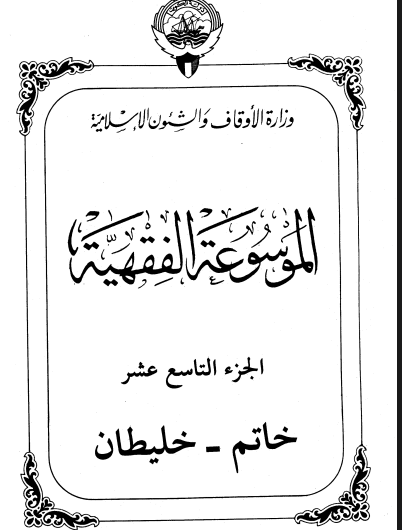 وزارة الأوقاف والشئون الإسلامية
الموسوعة الفقهية
الجزء التاسع عشر
خاتم - خليطان